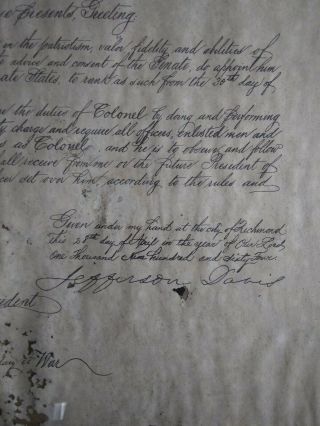 se Presents, Greeting:
in the patriotism, valor, fidelity and abilities of
e advice and consent of the Senate, do appoint him
ate States, to rank as such from the 30th day of
the duties of Colonel by doing and performing
ly charge and require all officers, enlisted men and
s as Colonel, and he is to observe and follow
all receive from me or the Future President of
cer set over him according to the rules and
Given under my hand at the city of Richmond
this 28th day of in the year of Our Lord,
one thousand hundred and sixty four.
Jefferson Davis
ident
War